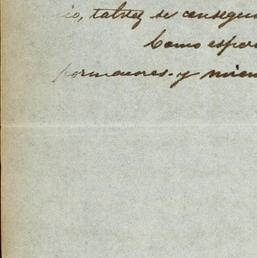 io, talvez se consegui
Como espero
pormenores. y mien